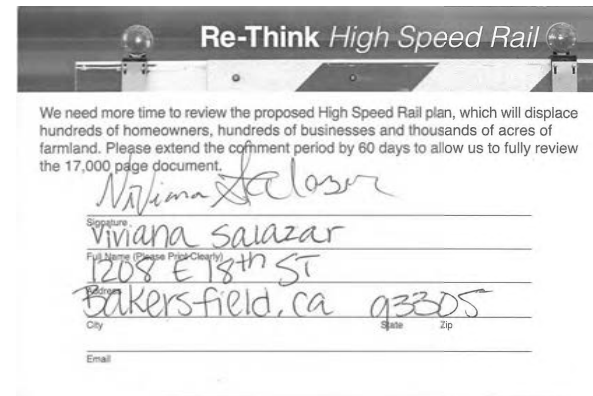 Re-Think High Speed Rail
We need more time to review the proposed High Speed Rail plan, which will displace
hundreds of homeowners, hundreds of businesses and thousands of acres of
farmland. Please extend the comment period by 60 days to allow us to fully review
the 17,000 page document.
Viviana Salazar
Signature
Viviana Salazar
Full Name (Please Print Clearly)
1208 E 18th ST
Address
Bakersfield, ca 93305
City State Zip
Email